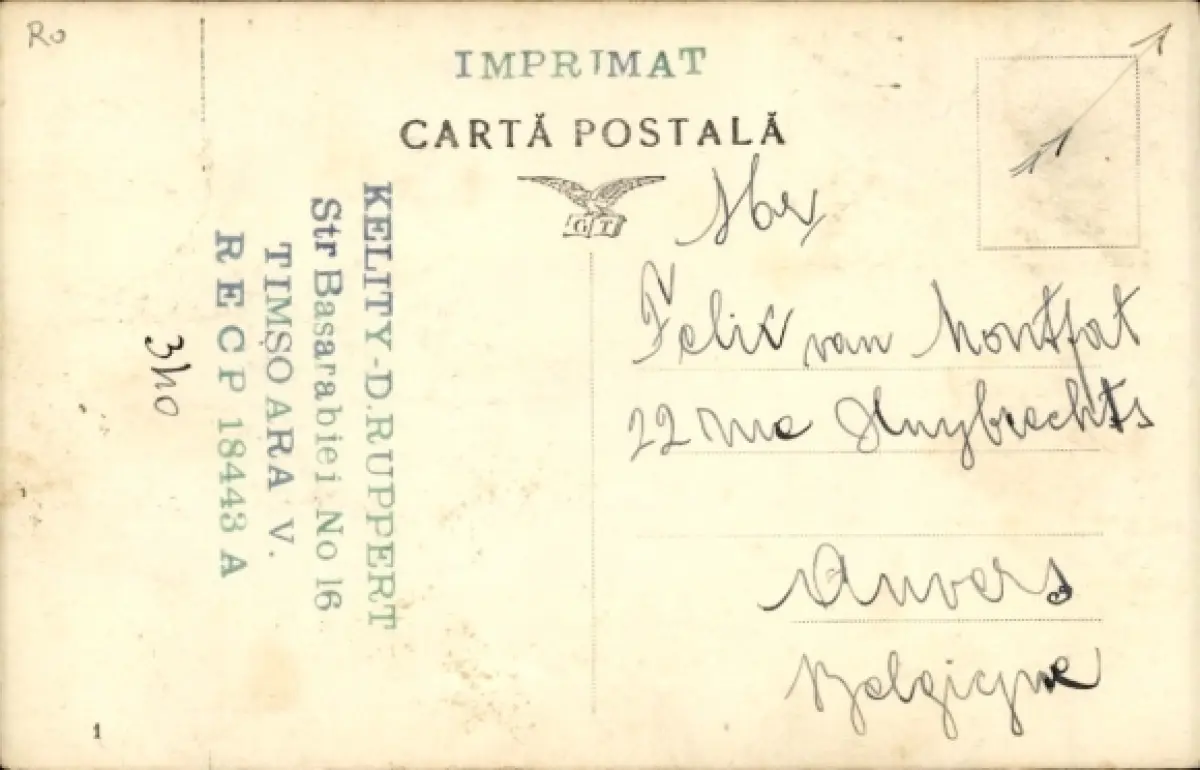 Ro
IMPRIMAT
CARTĂ POSTALĂ
G T
KELITY-D.RUPPERT
Str Basarabiei No 16
TIMȘOARA V.
RECP 18443 A
3ho
Felix van Montfat
22 rue Huybrechts
Anvers
Belgique
1